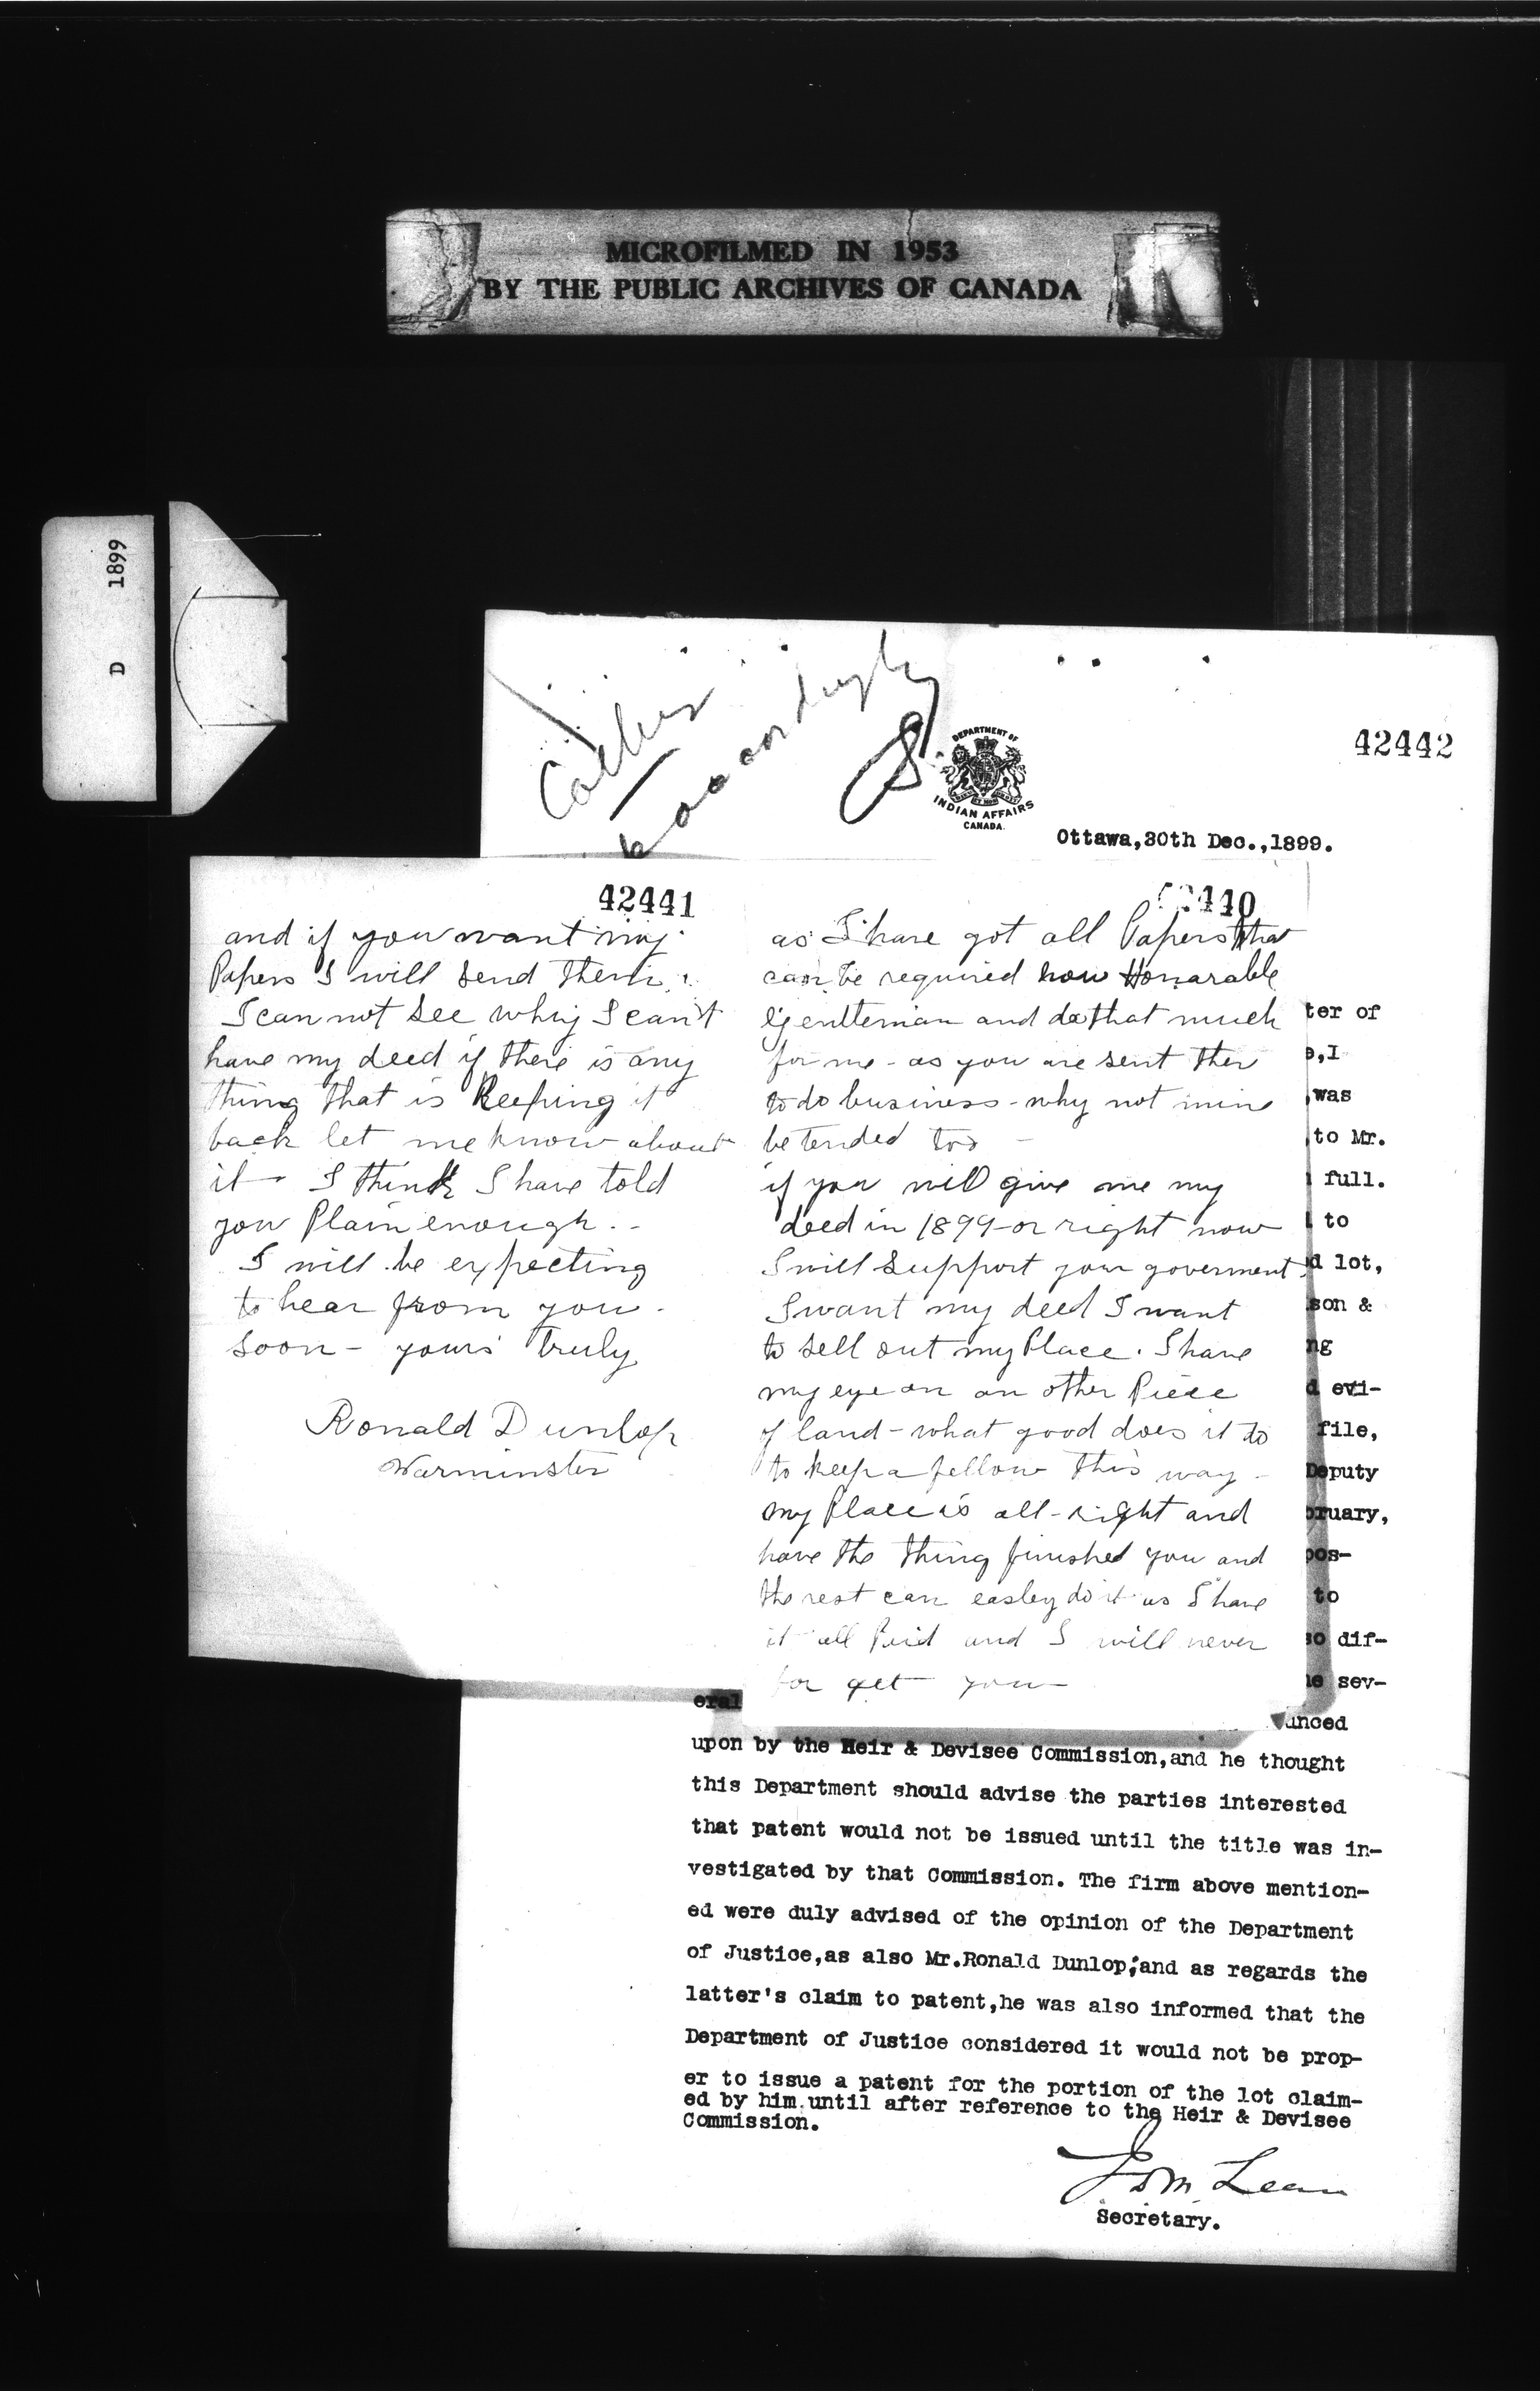 MICROFILMED IN 1953
BY THE PUBLIC ARCHIVES OF CANADA
D 1899
42442
DEPARTMENT OF
INDIAN AFFAIRS
CANADA.
Ottawa,30th Dec.,1899.
42440
as I have got all Papers that
can be required now Honarable
gentleman and do that much
for me - as you are sent ther
to do business - why not mine
be tended too -
if you will give me my
deed in 1899 - or right now
I will support your goverment
I want my deed I want
to sell out my Place. I have
my eye on an other Piece
of land - what good does it do
to keep a fellow this way -
my Place is all - right and
have the thing finished you and
the rest can easley do it as I have
it all Paid and I will never
for get you
42441
and if you want my
Papers I will send them.
I can not see why I can't
have my deed if there is any
thing that is Keeping it
back let me know about
it - I think I have told
you Plain enough. -
I will be expecting
to hear from you -
soon - yours truly
Ronald Dunlop
Warminster
ter of
e,I
was
to Mr.
full.
to
d lot,
son &
ng
d evi-
file,
Deputy
bruary,
pos-
to
so dif-
he sev-
eral unced
upon by the Heir & Devisee Commission,and he thought
this Department should advise the parties interested
that patent would not be issued until the title was in-
vestigated by that Commission. The firm above mention-
ed were duly advised of the opinion of the Department
of Justice,as also Mr.Ronald Dunlop;and as regards the
latter's claim to patent,he was also informed that the
Department of Justice considered it would not be prop-
er to issue a patent for the portion of the lot claim-
ed by him until after reference to the Heir & Devisee
Commission.
Secretary.